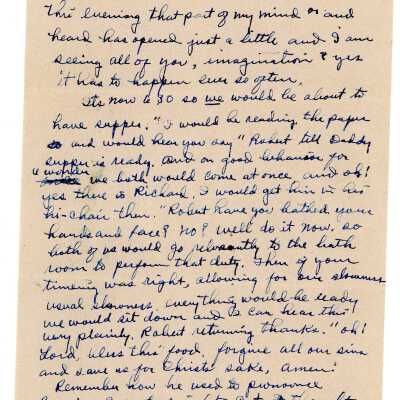 This evening that part of my mind & and
heard has opened just a little and I am
seeing all of you, imagination? yes
it has to happen ever so often.
Its now 6:30 so we would be about to
have supper. "I would be reading the paper
and would hear you say" Robert tell Daddy
supper is ready. And on good behavior for
a wonder we both would come at once, and oh!
yes there is Richard, I would get him in his
hi-chair then. "Robert have you bathed your
hands and face? No? well do it now, so
both of us would go reluctantly to the bath
room to perform that duty. Then if your
timeing was right, allowing for our slowness
usual slowness, everything would be ready
we would sit down and I can hear this
very plainly. Robert returning thanks. "Oh!
Lord, bless this food, forgive all our sins
and save us for Christs sake, Amen!"
Remember how he used to pronounce